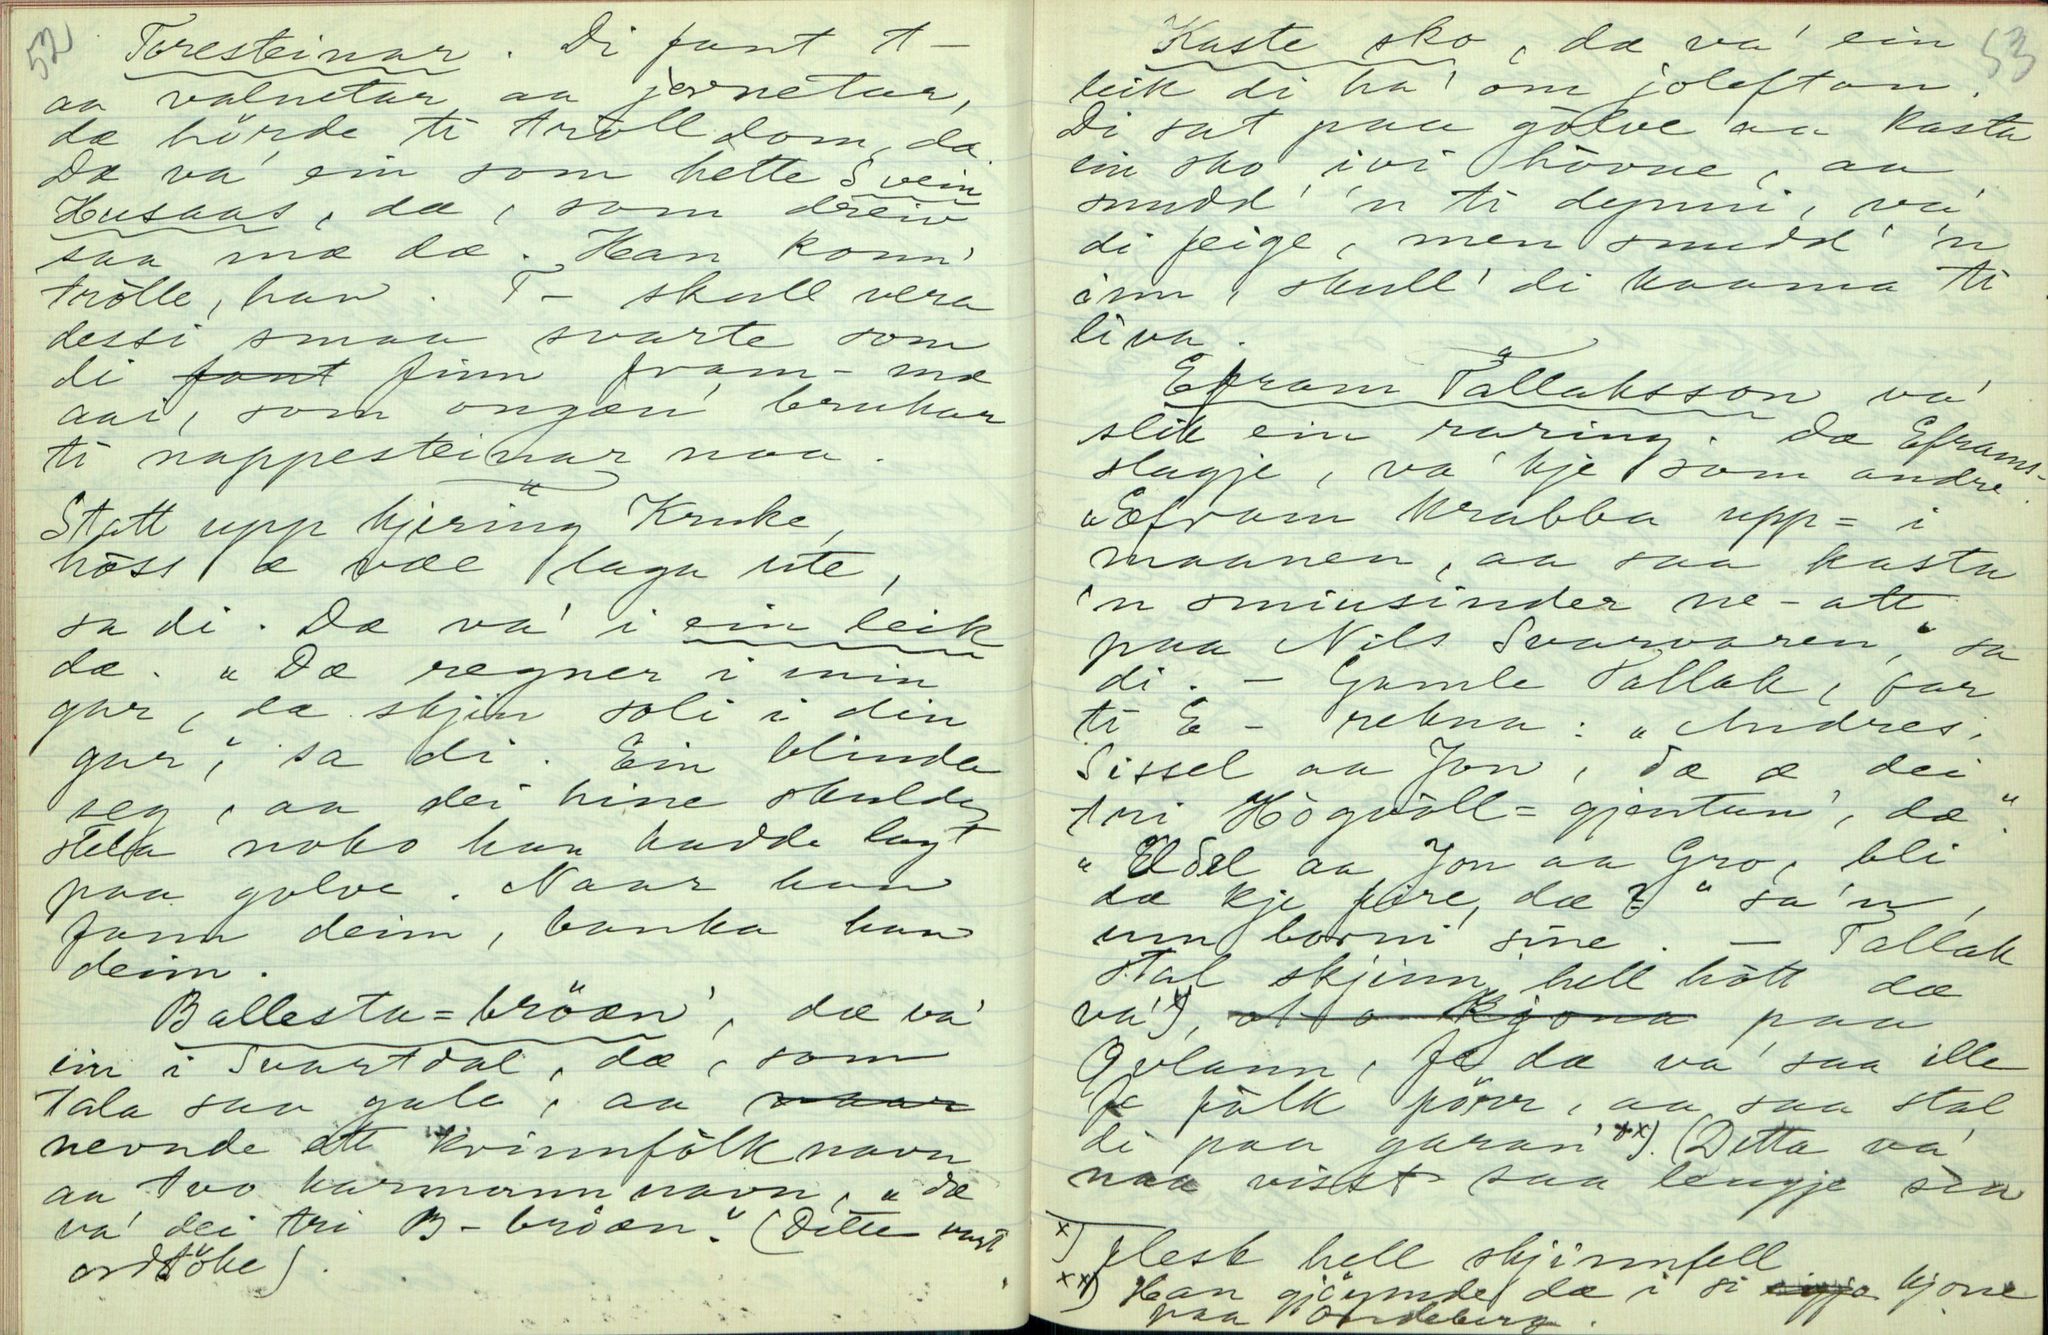 52
Toresteinar. Di fant t-
aa valnetar aa jonnetar,
dæ hörde ti trölldom, dæ.
Dæ va' ein som hette Svein
Husaas, dæ, som dreiv
saa mæ dæ. Han konn'
trölle, han. T- skull vera
dessi smaa svarte som
di fant finn fram-mæ
aai, som ongæn' brukar
ti nappesteinar naa.
Statt upp kjering Kruke,
höss æ væe laga ute,
sa di. Dæ va' i ein leik
dæ. "Dæ regner i min
gar, dæ skjin soli i din
gar", sa di. Ein blinda
seg, aa dei hine skulde
stela noko han hadde lagt
paa golve. Naar han
fann deim, banka han
deim.
Ballesta=bröæn', dæ va'
ein i Svartdal, dæ, som
tala saa gale, aa naar
nevnde ett kvinnfölknavn
aa tvo karmannnavn, "dæ
va' dei tri B-bröæn". (Ditte vart
ordtöke).
53
Kaste sko, dæ va' ein
leik di ha' om joleftan.
Di sat paa gölve aa kasta
ein sko ivi hövue, aa
snudd' 'n ti dynni, va'
di feige, men snudd' 'n
inn, skull' di kaama ti
liva.
Efram Tallaksson va'
slik ein raring. Dæ Eframs-
slagje, va' kje som andre.
"Efram krabba upp= i
maanen, aa saa kasta
'n sminsinder ne-att
paa Nils Svarvaren", sa
di. - Gamle Tallak, far
ti E- rekna: "Andres,
Sissel aa Jon, dæ æ dei
tri Högvöll=gjentun', dæ".
"Eldel aa Jon aa Gro, bli
dæ kje fire, dæ?" sa'n,
um borni sine. - Tallak
stal skjinn hell hött dæ
va' x), paa
Qvlann, fe dæ va' saa ille
fe fölk förr, aa saa stal
di paa garan' xx). (Ditta va'
naa visst saa lengje sia
x) flesk hell skjinnfell
xx) Han gjöymde dæ i si kjone
paa Sondeberg.